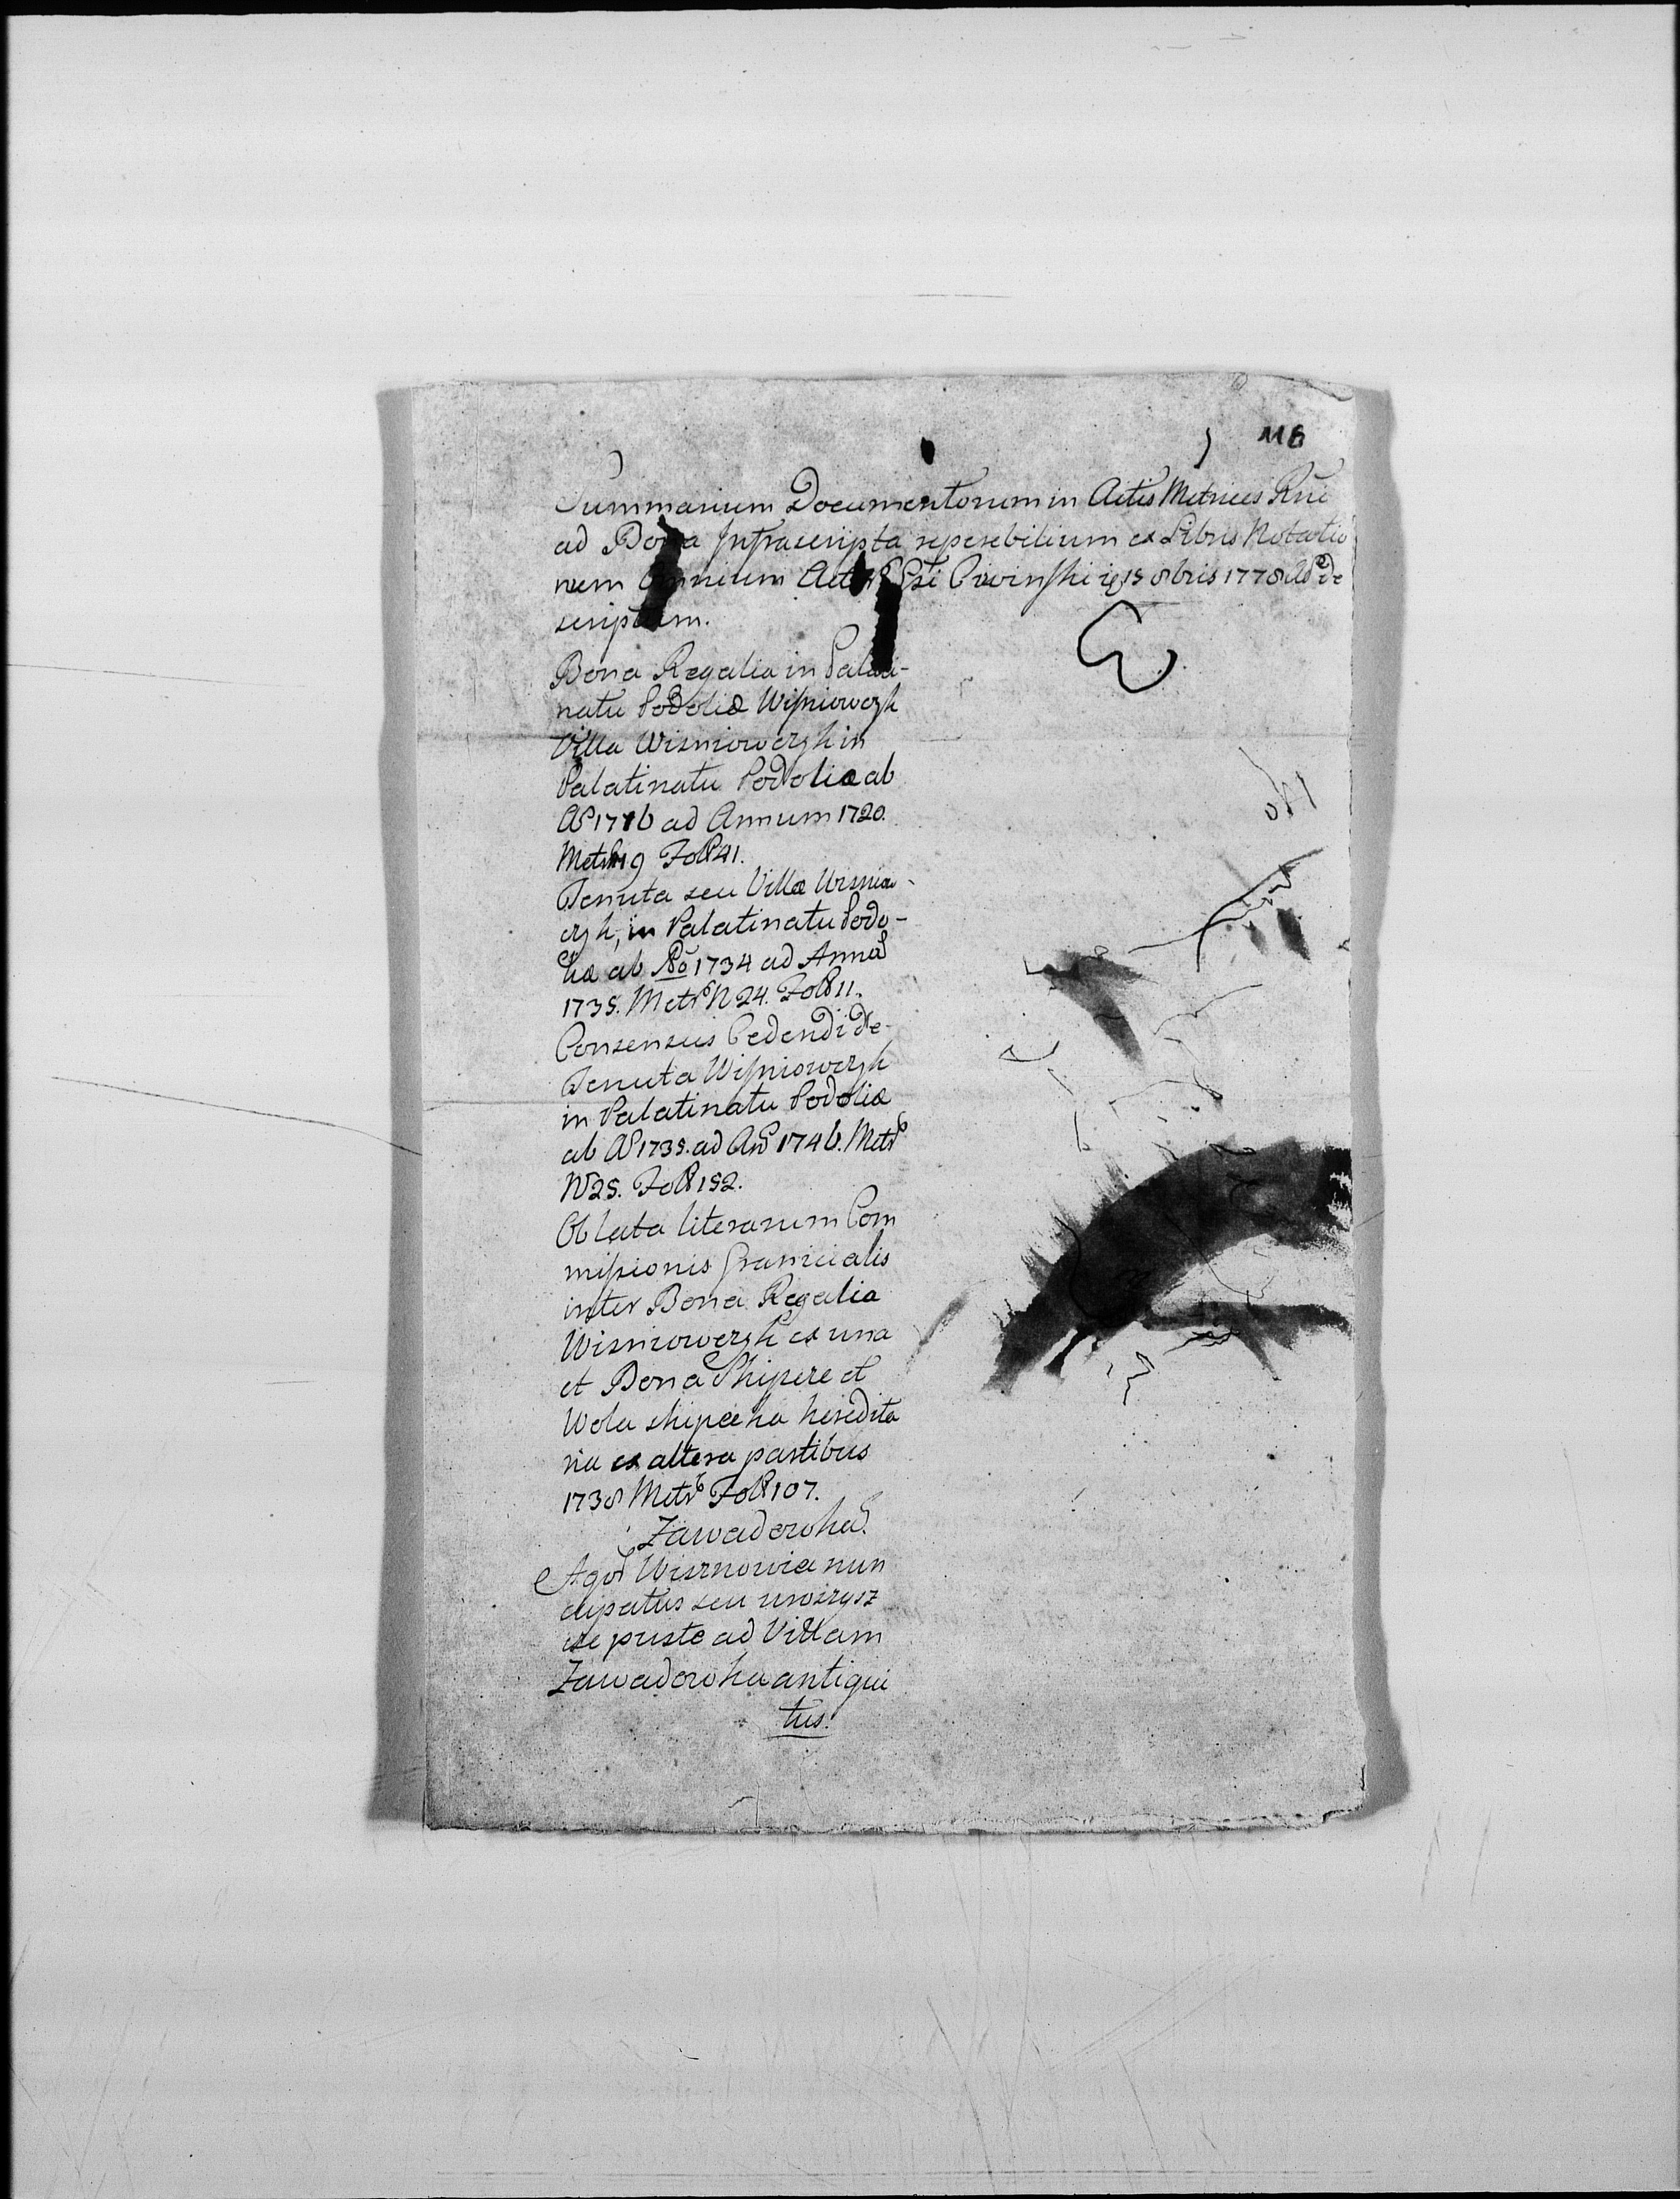 118
Summarium Documentorum in Actis Metrices Rni
ad Bona Infrascripta reperebilium ex Libris Notatio
num Omnium 15 8bris 1778 de
scriptum.
Bona Regalia in Palati-
natu Podoliæ Wiśniowczyk
Villa Wisniowczyk in
Palatinatu Podoliæ ab
Ao 1716 ad Annum 1720.
Metr 19 Folo 41.
Tenuta seu Villæ Wisniow-
czyk, in Palatinatu Podo-
liæ ab Ao 1734 ad Annū
1735. Metr N 24. Folo 11.
Consensus Cedendi de
Tenuta Wiśniowczyk
in Palatinatu Podoliæ
ab Ao 1735. ad Anō 1746. Metr
No 25. Folo 152.
Oblata literarum Com
missionis Granicialis
inter Bona Regalia
Wisniowczyk ex una
et Bona Skipcze et
Wola skipecka heredita
ria ex altera partibus
1738 Metr Folo 107.
Zawadowka.
Agor Wisznowia nun
cupatus seu uroczysz
cze puste ad Villam
Zawadowka antiqui
tus.